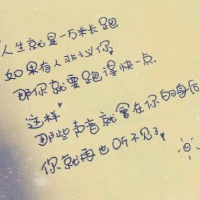 人生就是一万米长跑
如果有人非议你
那你就要跑得快一点.
这样
那些声音就会在你的身后
你就再也听不见了